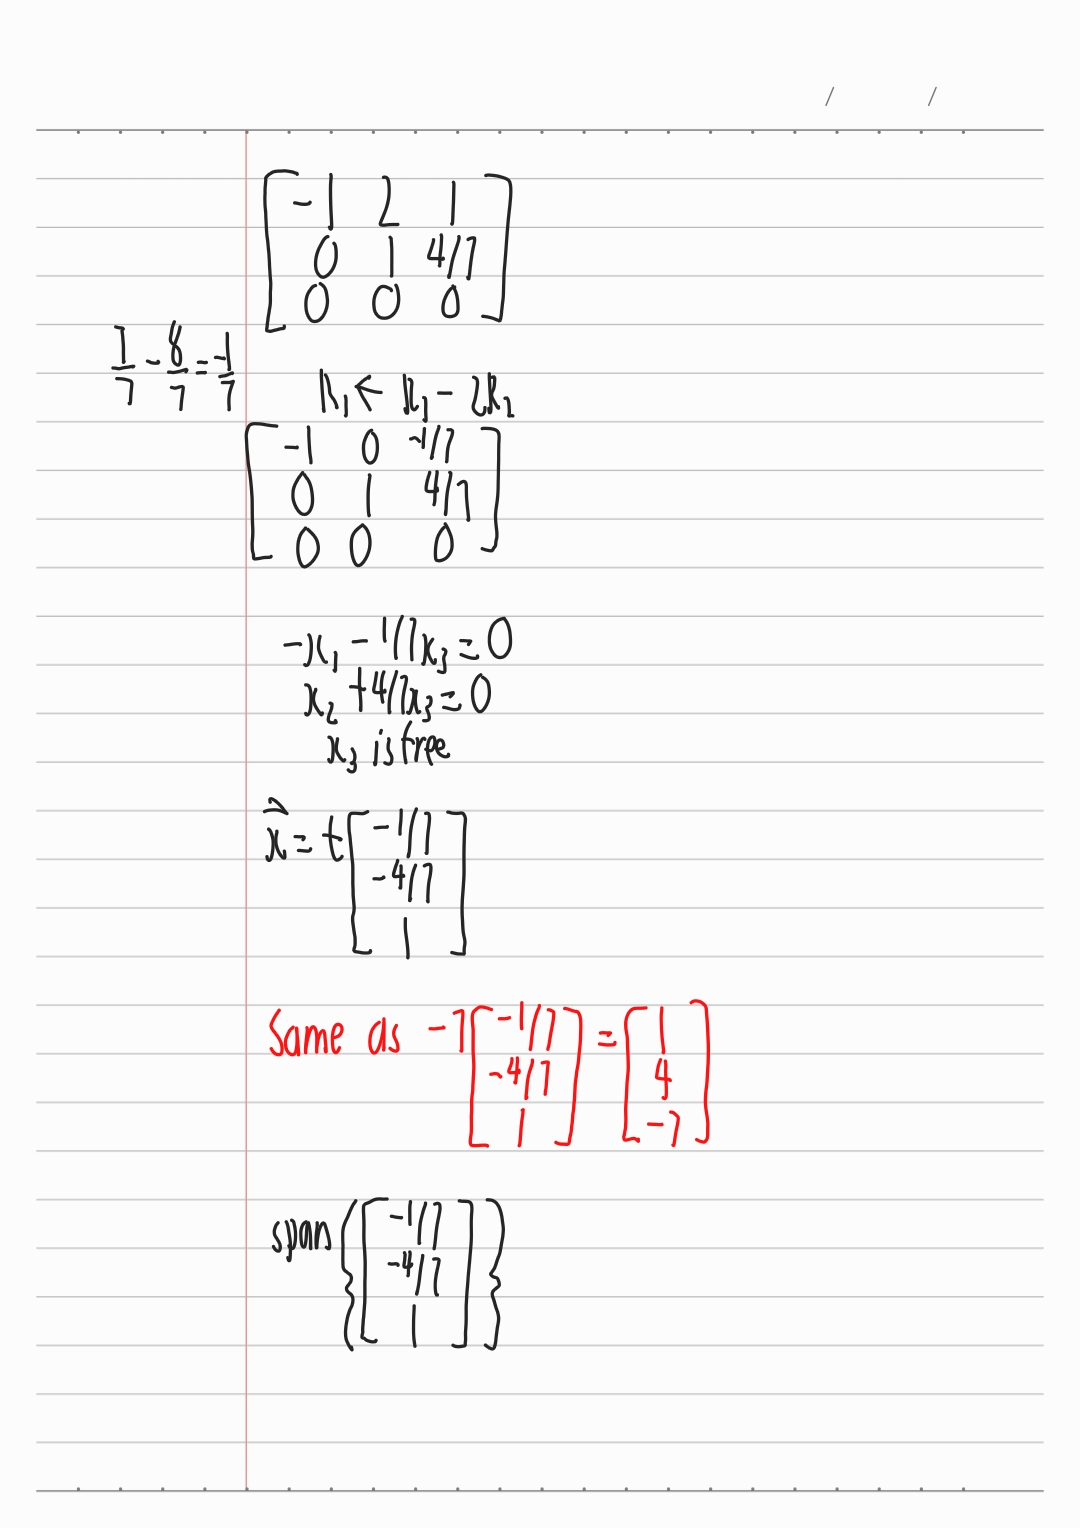 / /
[ -1 2 1
0 1 4/7
0 0 0 ]
7/7 - 8/7 = -1/7
R₁ ← R₁ - 2R₂
[ -1 0 -1/7
0 1 4/7
0 0 0 ]
-x₁ - 1/7x₃ = 0
x₂ + 4/7x₃ = 0
x₃ is free
x⃗ = t [ -1/7
-4/7
1 ]
Same as -7 [ -1/7 -4/7 1 ] = [ 1 4 -7 ]
span { [ -1/7
-4/7
1 ] }